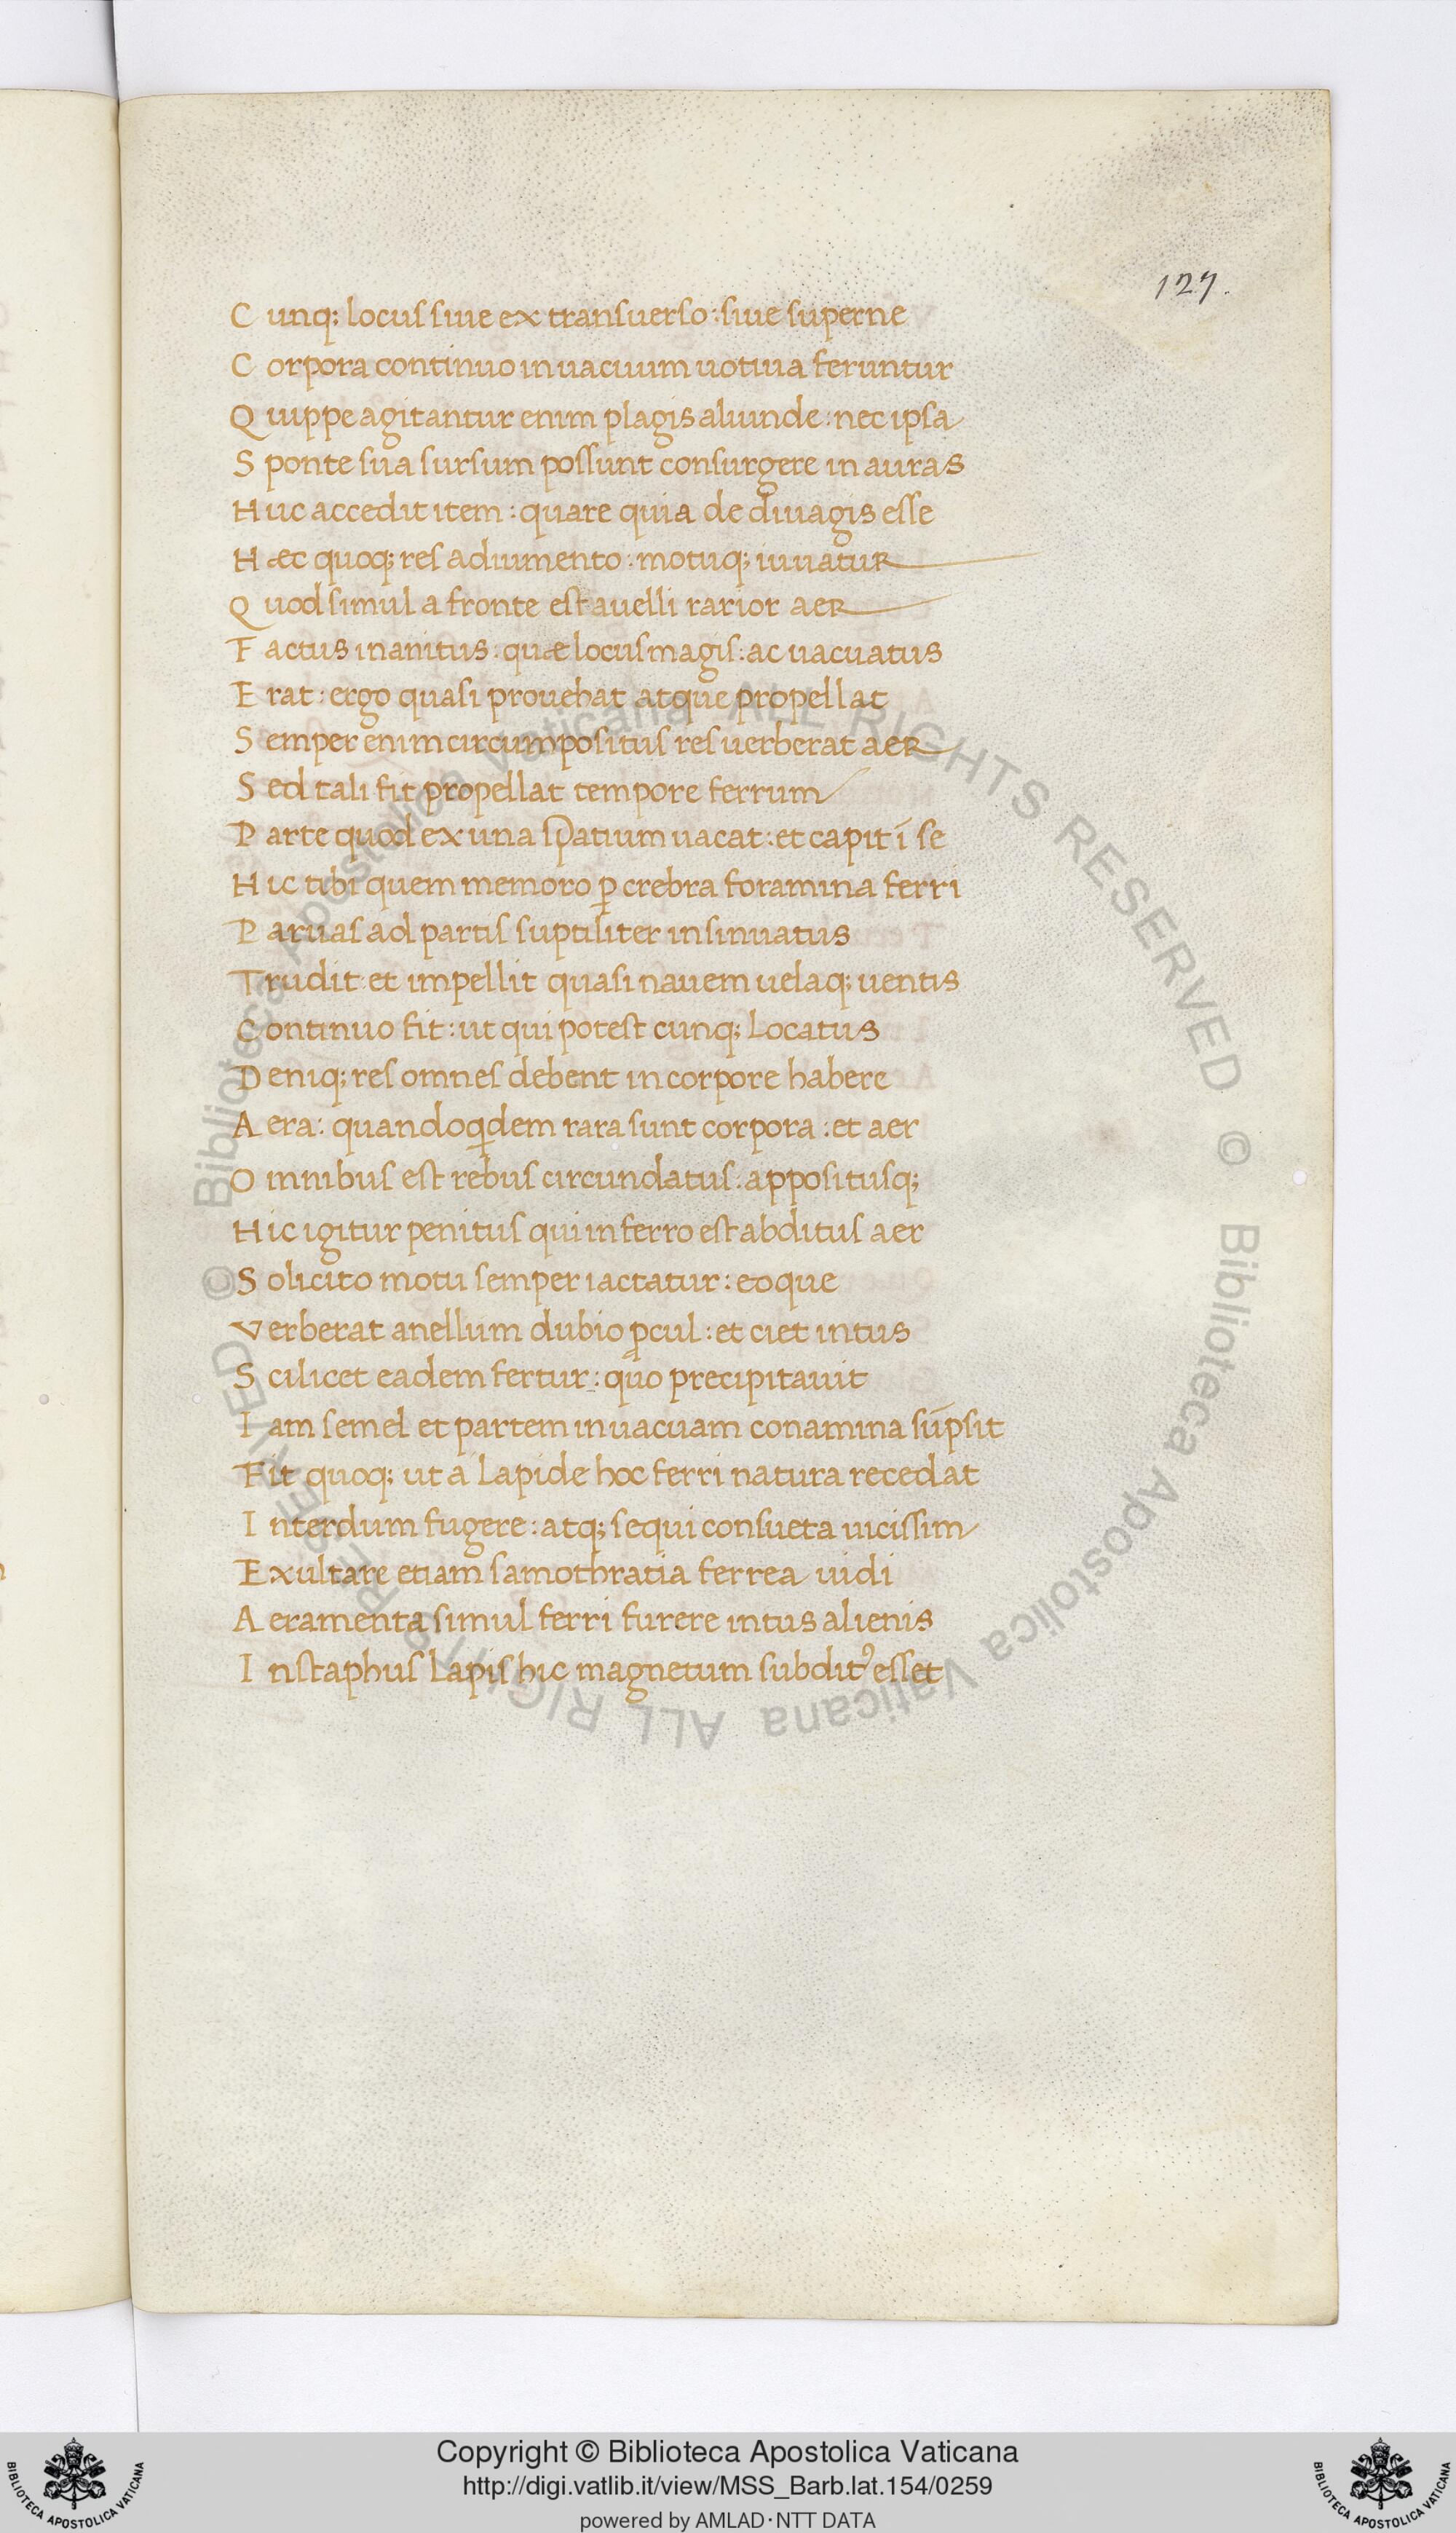 127.
C unq; locus siue ex transuerso : siue superne
C orpora continuo in uacuum uotiua feruntur
Q uippe agitantur enim plagis aliunde : nec ipsa
S ponte sua sursum possunt consurgere in auras
H uc accedit item : quare quia de diuagis esse
H æc quoq; res adiumento . motuq; iuuatur
Q uod simul a fronte est auelli rarior aer
F actus inanitus . quæ locus magis : ac uacuatus
E rat : ergo quasi prouehat atque propellat
S emper enim circumpositus res uerberat aer
S ed tali fit propellat tempore ferrum
P arte quod ex una spatium uacat : et capit ī se
H ic tibi quem memoro ꝑ crebra foramina ferri
P aruas ad partis suptiliter insinuatus
Trudit et impellit quasi nauem uelaq; uentis
C ontinuo fit : ut qui potest cunq; locatus
D eniq; res omnes debent in corpore habere
A era : quandoq̣dem rara sunt corpora : et aer
O mnibus est rebus circundatus . appositusq;
H ic igitur penitus qui in ferro est abditus aer
S olicito motu semper iactatur : eoque
V erberat anellum dubio ꝓcul : et ciet intus
S cilicet eadem fertur : quo precipitauit
I am semel et partem in uacuam conamina sūpsit
Fit quoq; ut a lapide hoc ferri natura recedat
I nterdum fugere : atq; sequi consueta uicissim
Exultare etiam samothratia ferrea uidi
A eramenta simul ferri furere intus alienis
I nstaphus lapis hic magnetum subditꝰ esset
© Biblioteca Apostolica Vaticana ALL RIGHTS RESERVED © Biblioteca Apostolica Vaticana ALL RIGHTS RESERVED
Copyright © Biblioteca Apostolica Vaticana
http://digi.vatlib.it/view/MSS_Barb.lat.154/0259
powered by AMLAD·NTT DATA
BIBLIOTECA APOSTOLICA VATICANA
BIBLIOTECA APOSTOLICA VATICANA